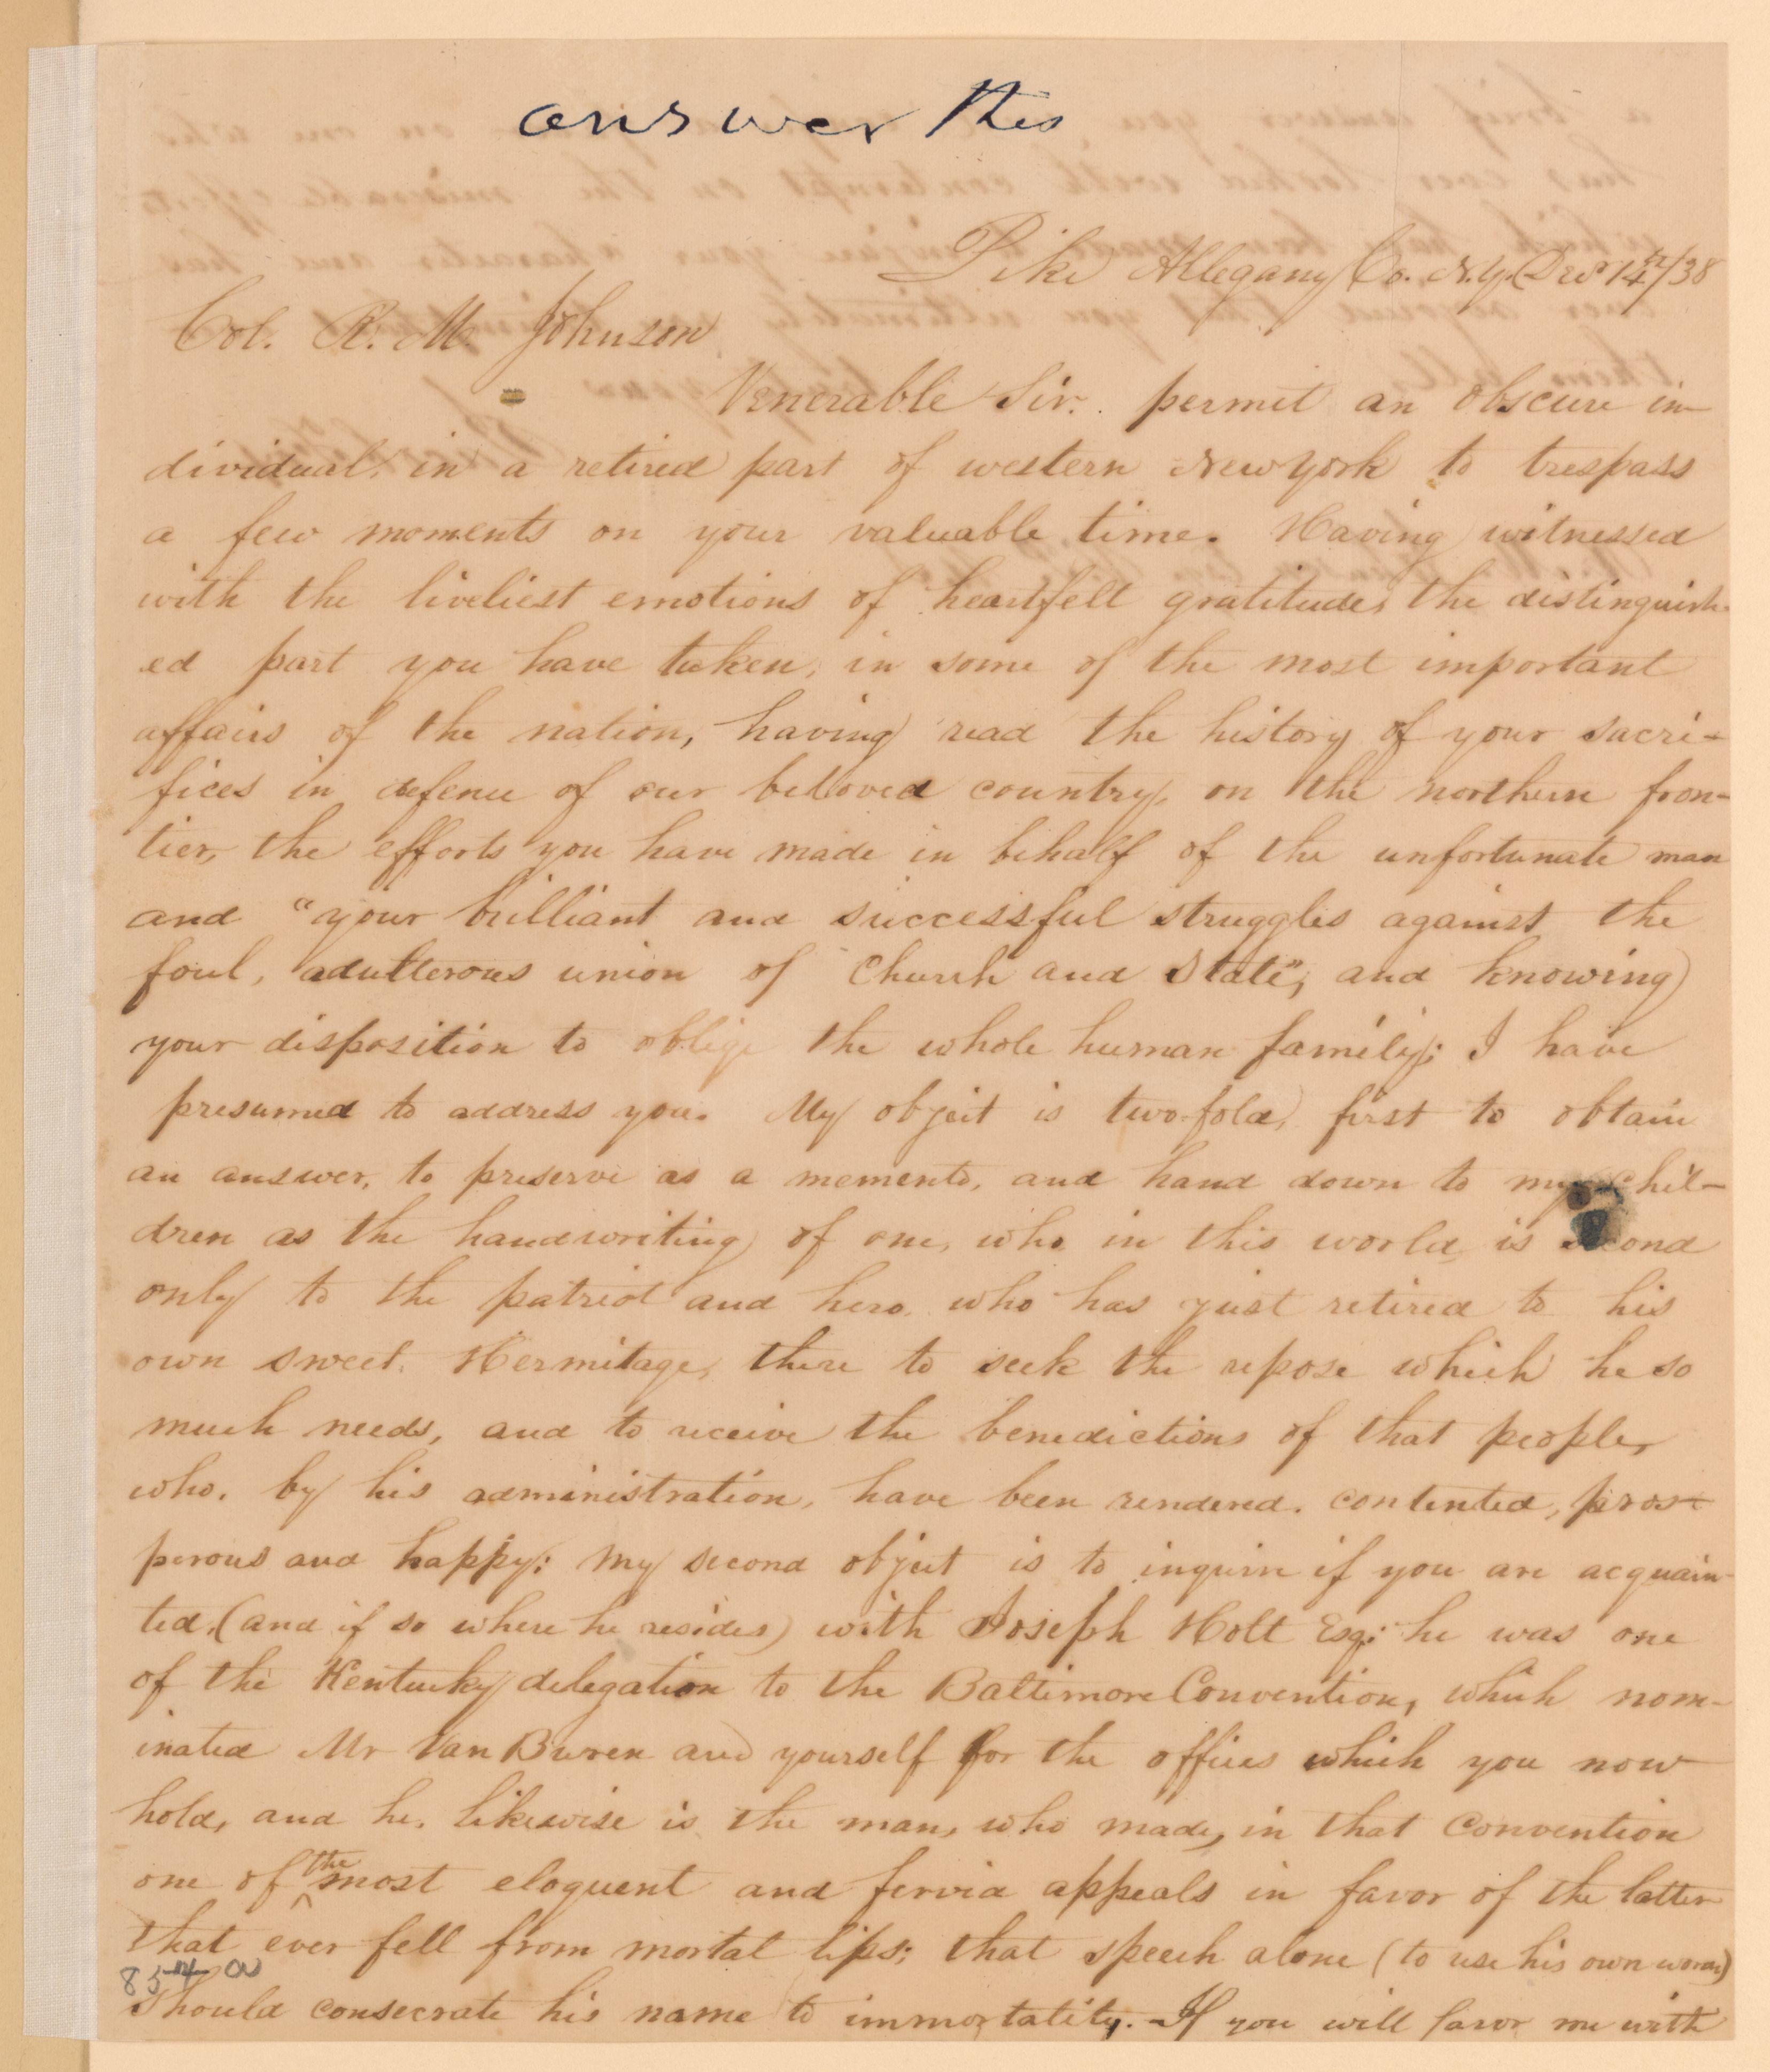 answer this
Pike Allegany Co. N.Y. Decr 14th/38
Col. R. M. Johnson
Venerable Sir. permit an obscure in-
dividual, in a retired part of western New York to trespass
a few moments on your valuable time. Having witnessed
with the liveliest emotions of heartfelt gratitude, the distinguish-
ed part you have taken, in some of the most important
affairs of the nation, having read the history of your sacri-
fices in defence of our beloved country, on the northern fron-
tier, the efforts you have made in behalf of the unfortunate man
and "your brilliant and successful struggles against the
foul, adulterous union of Church and State", and knowing
your disposition to oblige the whole human family; I have
presumed to address you. My object is two-fold, first to obtain
an answer, to preserve as a memento, and hand down to my chil-
dren as the handwriting of one, who in this world, is second
only to the patriot and hero, who has just retired to his
own sweet Hermitage, there to seek the repose which he so
much needs, and to receive the benedictions of that people,
who, by his administration, have been rendered, contented, pros-
perous and happy: My second object is to inquire if you are acquain-
ted, (and if so where he resides) with Joseph Holt Esq: he was one
of the Kentucky delegation to the Baltimore Convention, which nom-
inated Mr Van Buren and yourself for the offices which you now
hold, and he, likewise is the man, who made, in that Convention
one of the most eloquent and fervid appeals in favor of the latter
that ever fell from mortal lips; that speech alone (to use his own words)
should consecrate his name to immortality. If you will favor me with